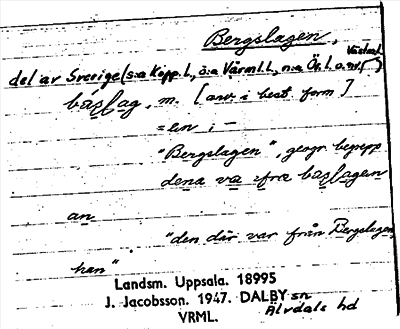 Bergslagen,
Västml.
del av Sverige (s:a Kopp. l., ö:a Värml. l., n:a Ör. l. o. nv.
básļag, m. [anv. i best. form]
= en, i –
"Bergslagen", geogr. begrepp
dena va ifra basļagen
an
"den där var från Bergslagen,
han"
Landsm. Uppsala. 18995
J. Jacobsson. 1947. DALBY sn
VRML. Älvdals hd